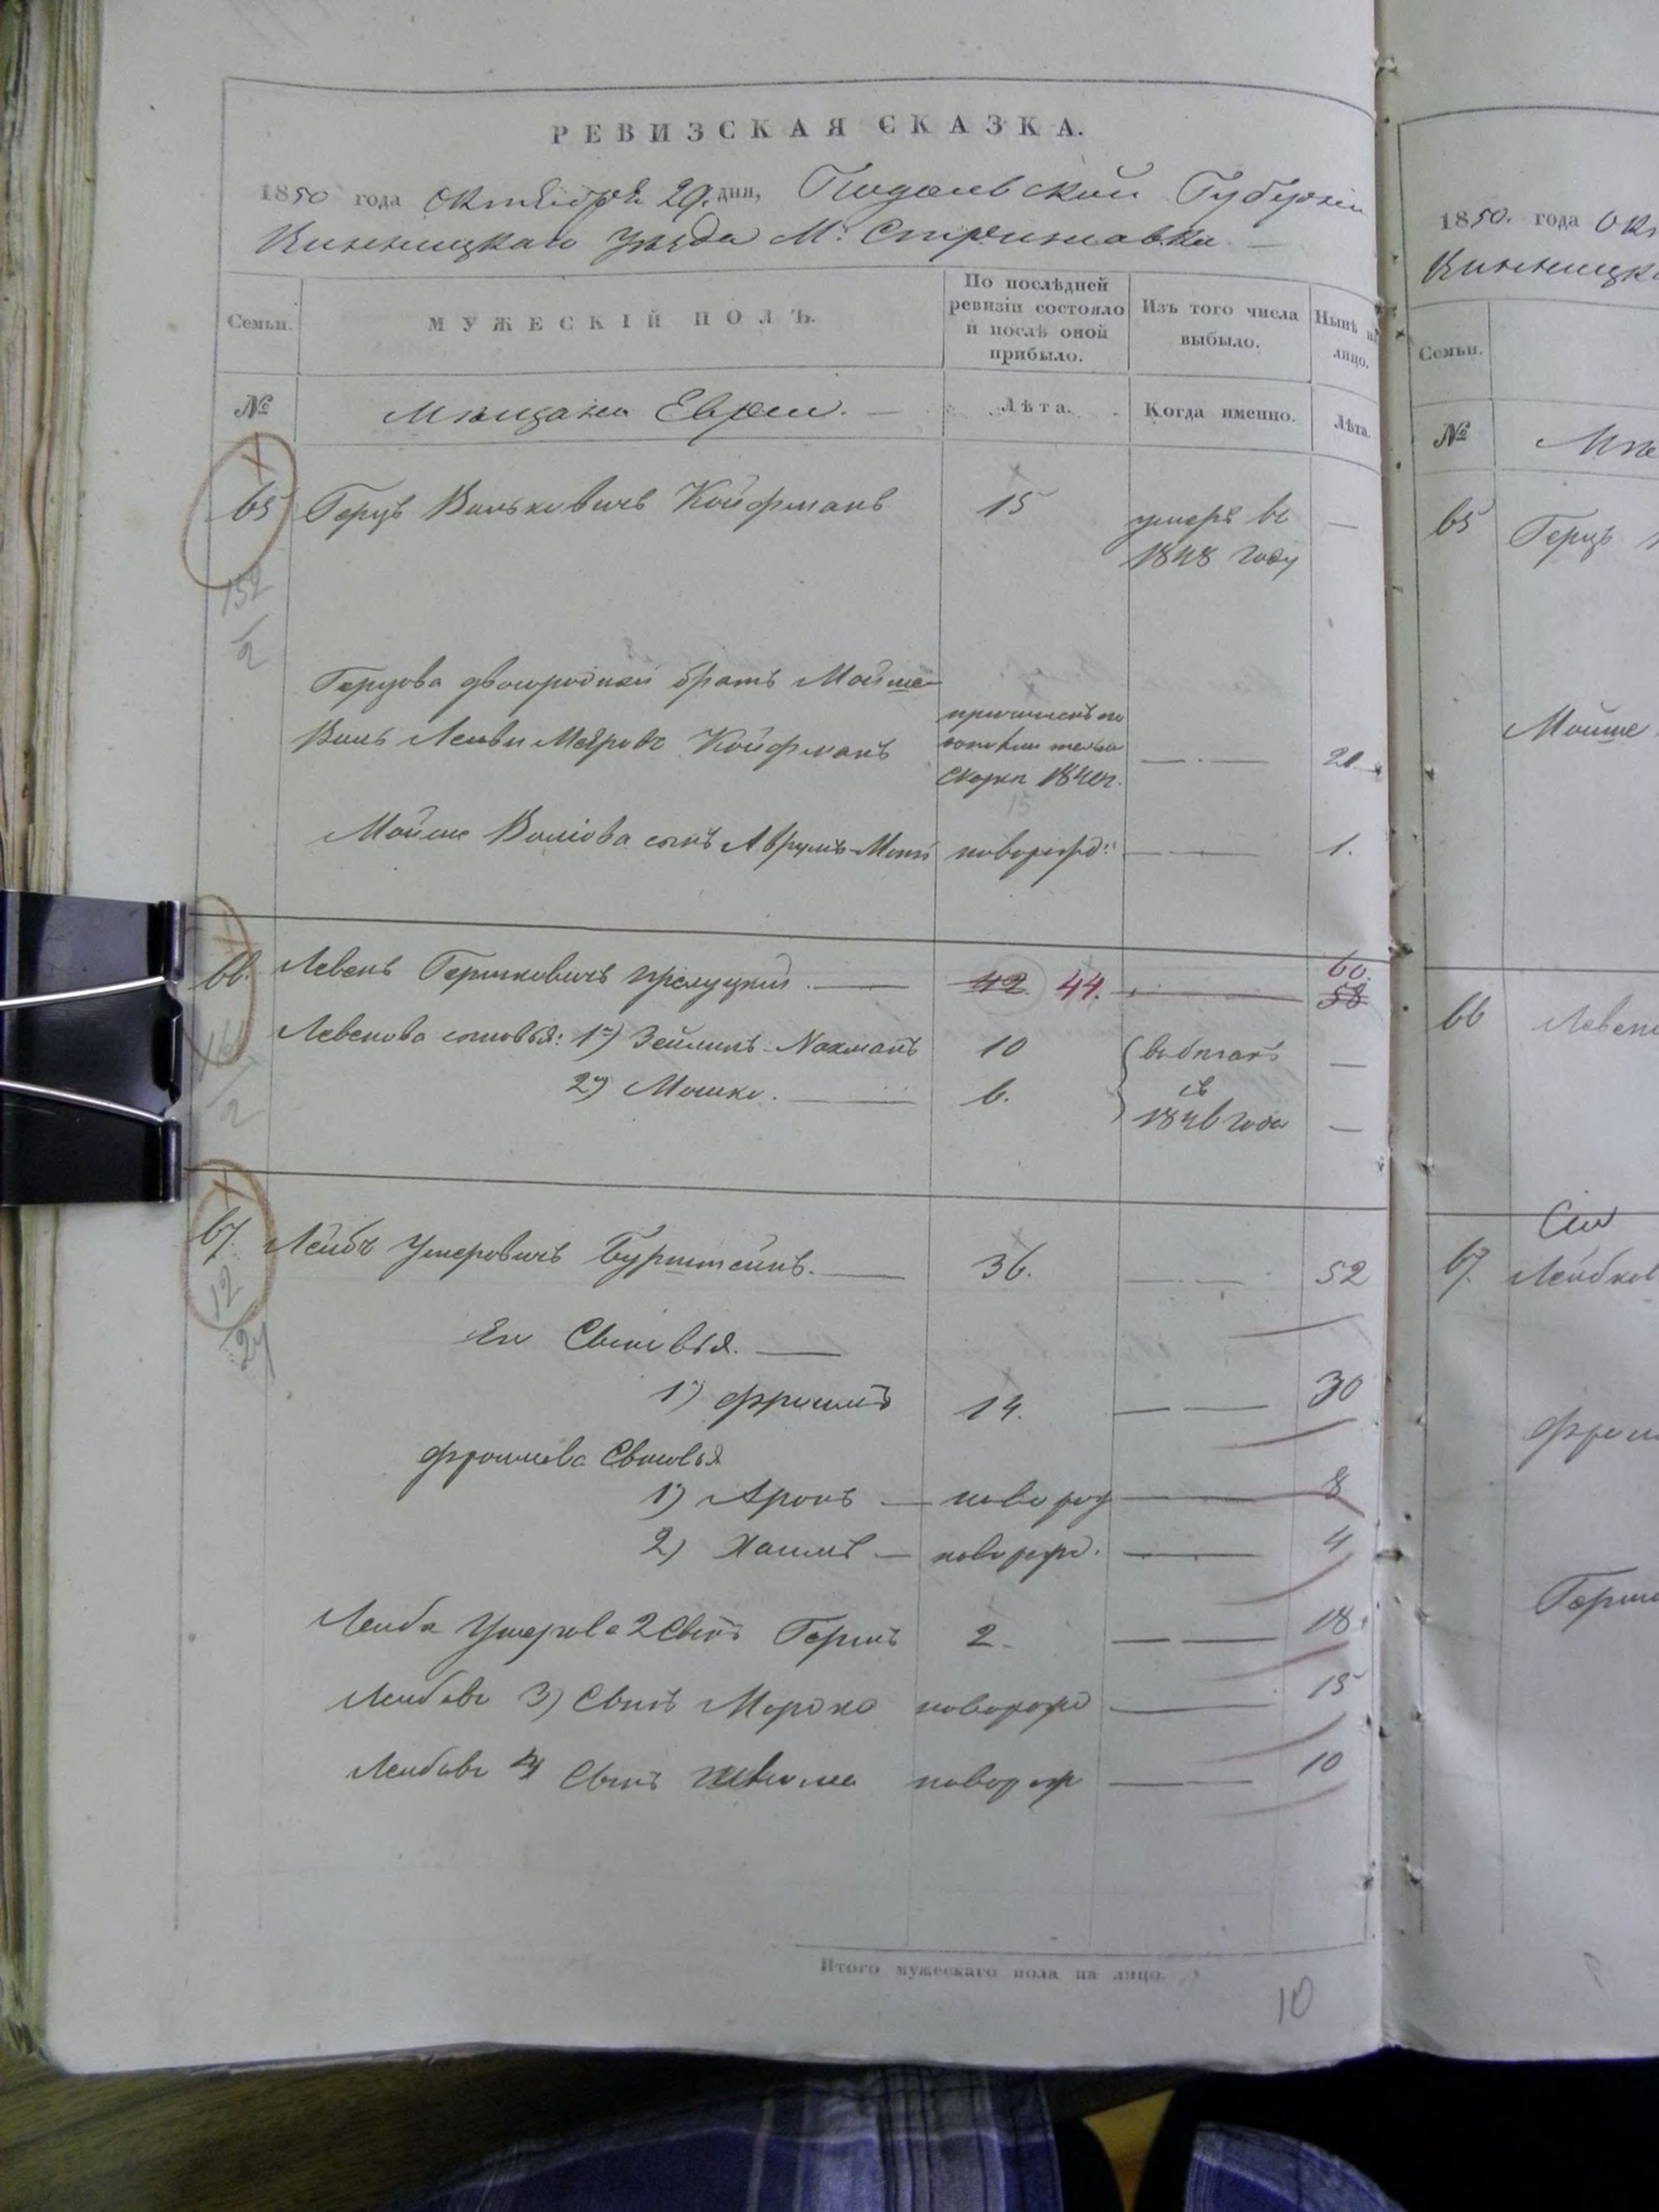 РЕВИЗСКАЯ СКАЗКА.
1850 года Октября 29. дня, Подольской Губерніи
Винницкаго Уезда М. Стрижавки
Семьи.
МУЖЕСКІЙ ПОЛЪ.
По послѣдней ревизіи состояло и послѣ оной прибыло.
Изъ того числа выбыло.
Нынѣ на лицо.
№
Мещане Евреи.
Лѣта.
Когда именно.
Лѣта.
65 Герцъ Вольковичъ Койфманъ 15 умеръ въ —
1848 году
152
2
Герцова двоюродной братъ Мойше
Воль Лейви Мееровъ Койфманъ — 21
сказки
15
Мойше Волюва сынъ Аврумъ новорожд: — 1.
66. Левекъ Гершковичъ — 42 44. — 60.
58
Левекова сыновья: 1й) Зейликъ Нахманъ 10 —
2й) Мошко. — 6. 1846 года —
2
67. Лейбъ Ушеровичъ Бурштейнъ. — 36. — 52
12
24
Его Сыновья. —
1й) Фроимъ 14. — 30
Фроимова Сыновья
1) Аронъ — новорож — 8
2) Хаимъ — новорож. — 4
Лейба Ушерова 2 Сынъ Гершъ 2. — 18
Лейбовъ 3) Сынъ Мордко новорож — 15
Лейбовъ 4) Сынъ новорож — 10
Итого мужескаго пола на лицо.
10
1850. года Ок
Винницк
Семьи.
№
Ме
65 Герцъ
Мойше
66 Левек
67. Лейбов
Фроим
Герш